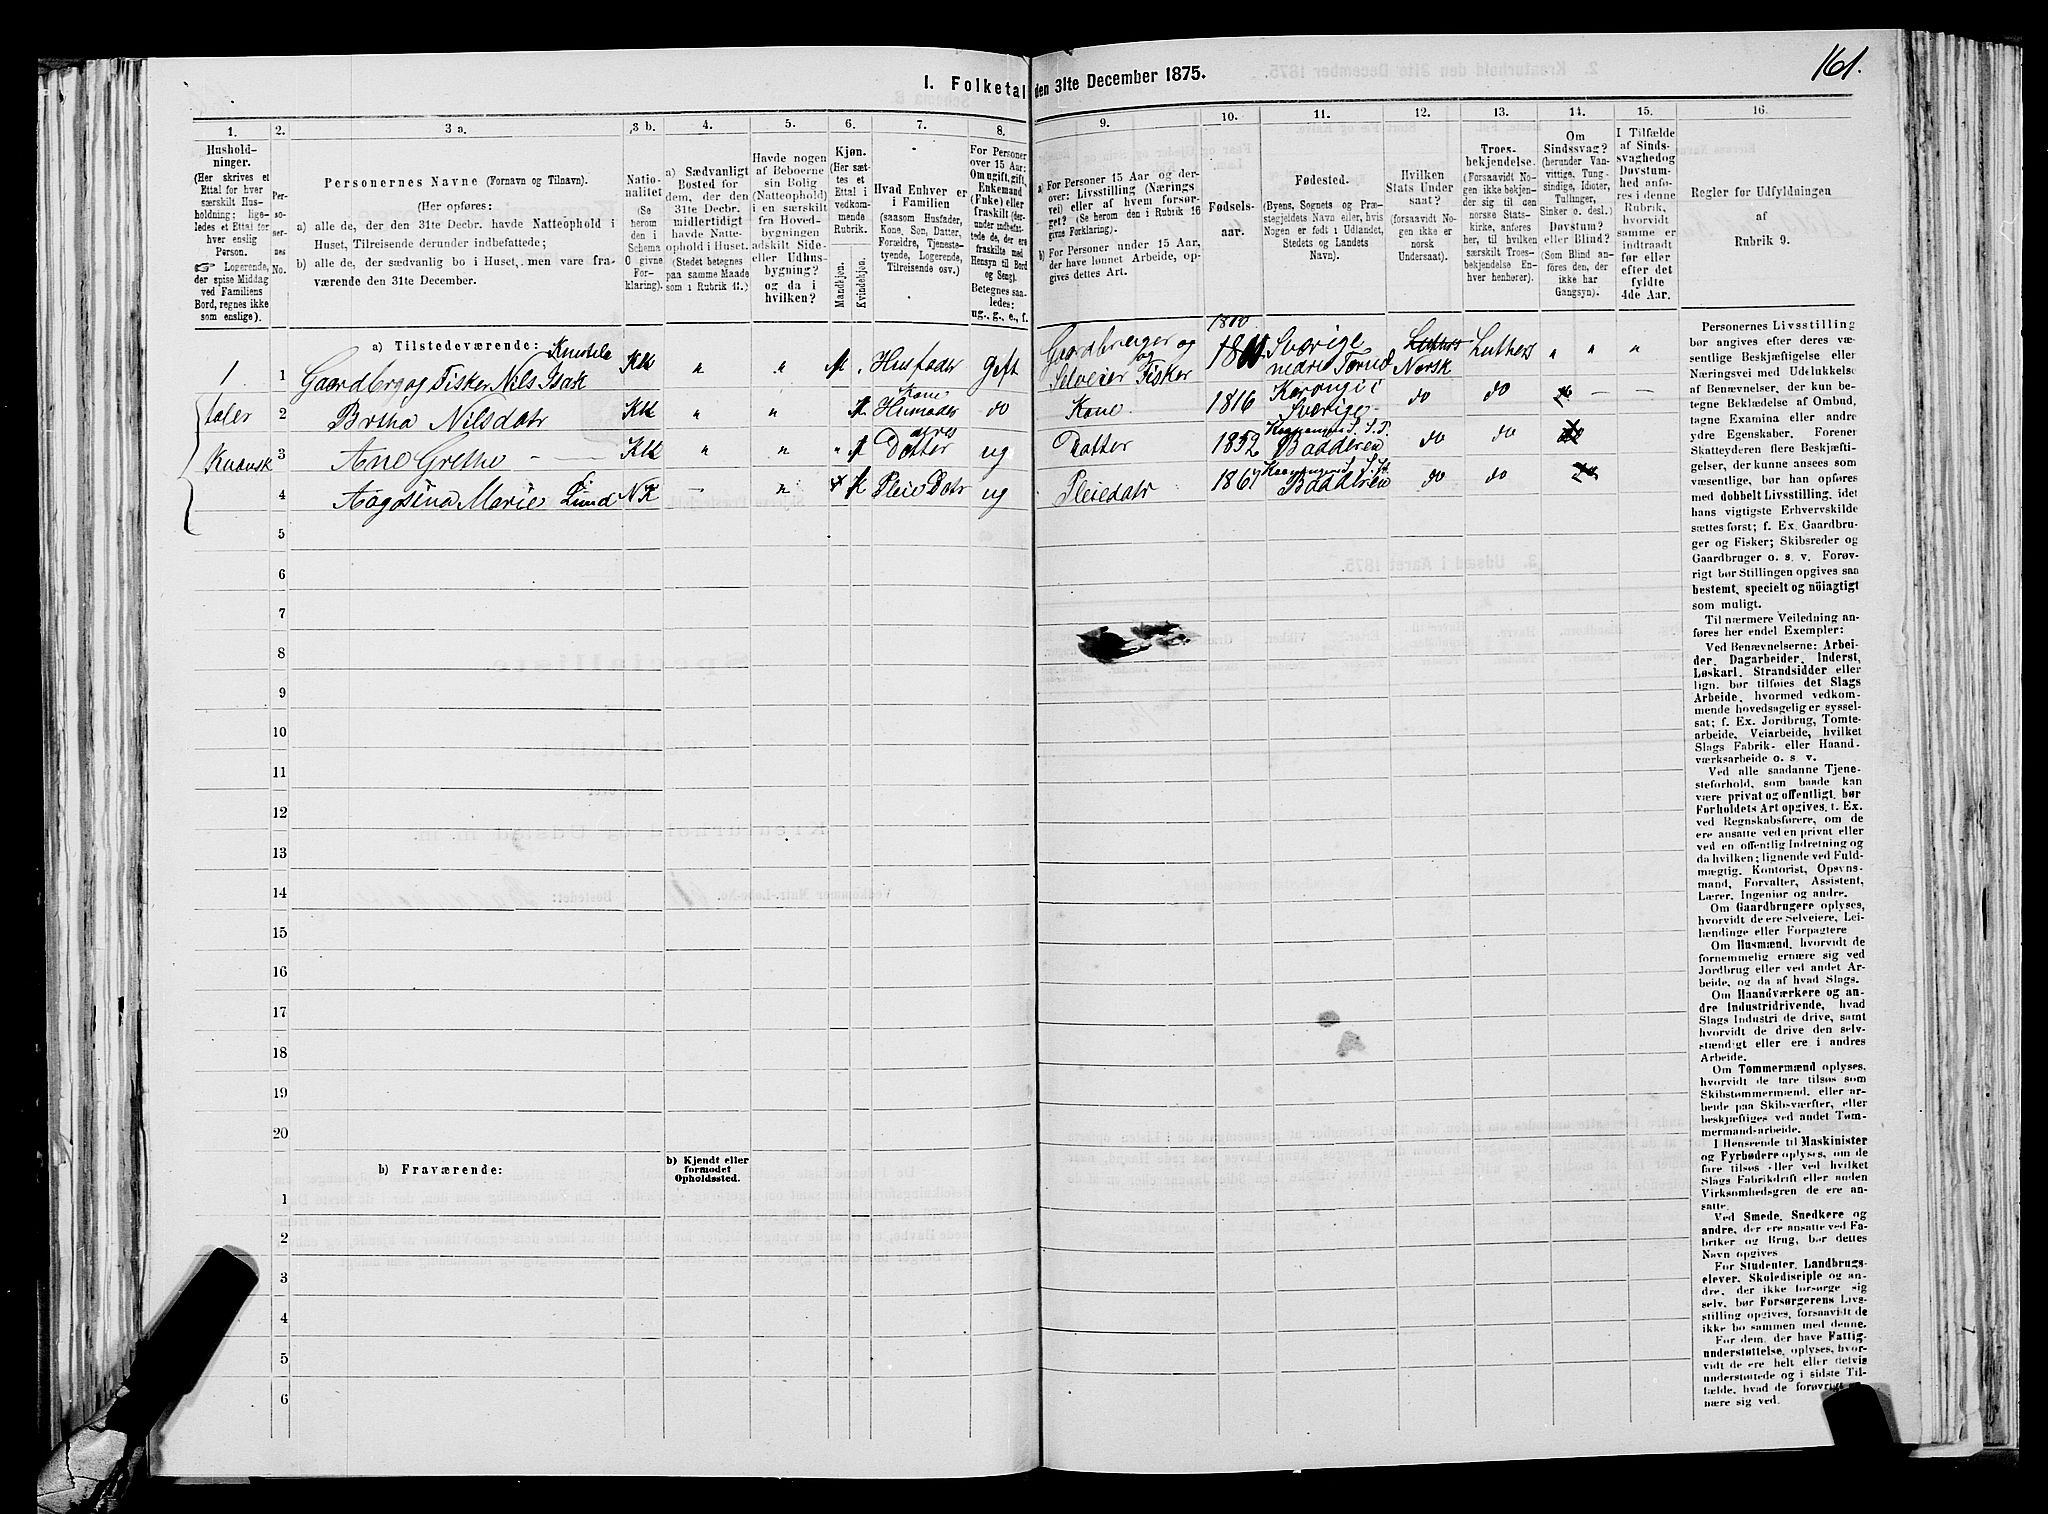 161.
I. Folketal den 31te December 1875.
1. 2. 3 a. 3 b. 4. 5. 6. 7. 8. 9. 10. 11. 12. 13. 14. 15. 16.
Hushold-
ninger.
(Her skrives et
Ettal for hver
særskilt Hus-
holdning; lige-
ledes et Ettal for
hver enslig
Person.
☞ Logerende,
der spise Middag
ved Familiens
Bord, regnes ikke
som enslige).
Per-
so-
ner-
nes
No.
Personernes Navne (Fornavn og Tilnavn).
(Her opføres:
a) alle de, der den 31te Decbr. havde Natteophold i
Huset, Tilreisende derunder indbefattede;
b) alle de, der sædvanlig bo i Huset, men vare fra-
værende den 31te December.
Natio-
nalitet
(Se
herom
den i
Schema
O givne
For-
klaring).
a) Sædvanligt
Bosted for
dem, der den
31te Decbr.
midlertidigt
havde Natte-
ophold i Huset.
(Stedet betegnes
paa samme Maade
som i Rubrik 11.)
Havde nogen
af Beboerne
sin Bolig
(Natteophold)
i en særskilt
fra Hoved-
bygningen
adskilt Side-
eller Udhus-
bygning?
og da i
hvilken?
Kjøn.
(Her sæt-
tes et
Ettal i
vedkom-
mende
Rubrik.
Mandkjøn.
Kvindekjøn.
Hvad Enhver er
i Familien
(saasom Husfader,
Kone, Søn, Datter,
Forældre, Tjeneste-
tyende, Logerende,
Tilreisende osv.)
For Personer
over 15 Aar:
Om ugift, gift,
Enkemand
(Enke) eller
fraskilt (der-
under indbefat-
tede de, der ere
fraskilte med
Hensyn til Bord
og Seng).
Betegnes saa-
ledes:
ug., g., e., f.
a) For Personer 15 Aar og der-
over: Livsstilling (Nærings-
vei) eller af hvem forsør-
get? (Se herom den i Rubrik 16
givne Forklaring).
b) For Personer under 15 Aar,
der have lønnet Arbeide, op-
gives dettes Art.
Fødsels-
aar.
Fødested.
(Byens, Sognets og Præ-
stegjeldets Navn eller, hvis
Nogen er født i Udlandet,
Stedets og Landets
Navn).
Hvilken
Stats Under-
saat?
(forsaavidt No-
gen ikke er
norsk
Undersaat).
Troes-
bekjendelse.
(Forsaavidt No-
gen ikke bekjen-
der sig til den
norske Stats-
kirke, her sættes, til hvilken
særskilt Troes-
bekjendelse En-
hver henhører).
Om
Sindssvag?
(herunder Van-
vittige, Tung-
sindige, Idioter,
Tullinger,
Sinker o. desl.)
Døvstum?
eller Blind?
(Som Blind an-
føres den, der
ikke har
Gangsyn).
I Tilfælde
af Sinds-
svaghed og
Døvstum-
hed anfø-
res i denne
Rubrik,
hvorvidt
samme er
indtraadt
før eller
efter det
fyldte
4de Aar.
Regler for Udfyldningen
af
Rubrik 9.
a) Tilstedeværende:
1 1 Gaardbr og Fisker Nils Isak Kk " " Husfader gift Gaardbruger og
Selveier Fisker Sverige
nedre Torneå Norsk Luthers " " "
taler 2 Brtha Nilsdatr Kk " " Kone do Kone 1816 Karungi i
Sverige do do
Kvænsk 3 Ane Grethe — Kk " " Datter ug Datter 1852 Badderen do do
4 Aagosina Marie Lund NK — " Pleie Datr ug Pleiedatr 1867 Badderen do do
5
6
7
8
9
10
11
12
13
14
15
16
17
18
19
20
b) Fraværende:
b) Kjendt eller
formodet
Opholdssted.
1
2
3
4
5
6
Personernes Livsstilling
bør angives efter deres væ-
sentlige Beskjæftigelse eller
Næringsvei med Udelukkelse
af Benævnelser, der kun be-
tegne Beklædelse af Ombud,
tagne Examina eller andre
ydre Egenskaber. Forener
Skatteyderen flere Beskjæfti-
gelser, der kunne ansees som
væsentlige, bør han opføres
med dobbelt Livsstilling, idet
hans vigtigste Erhvervskilde
sættes først; f. Ex. Gaardbru-
ger og Fisker; Skibsreder og
Gaardbruger o. s. v. Forøv-
rigt bør Stillingen opgives saa
bestemt, specielt og nöiagtigt
som muligt.
Til nærmere Veiledning an-
føres her endel Exempler:
Ved Benævnelserne: Arbei-
der, Dagarbeider, Inderst,
Løskarl, Strandsidder eller
lign. bør tilføies det Slags
Arbeide, hvormed vedkom-
mende hovedsagelig er syssel-
sat; f. Ex. Jordbrug, Tomte-
arbeide, Veiarbeide, hvilket
Slags Fabrik- eller Haand-
værksarbeide o. s. v.
Ved alle saadanne Tjene-
steforhold, som baade kan
være privat og offentligt, bør
Forholdets Art opgives, t. Ex.
ved Regnskabsførere, om de
ere ansatte ved en privat eller
ved en offentlig Indretning og
da hvilken; lignende ved Fuld-
mægtig, Kontorist, Opsyns-
mand, Forvalter, Assistent,
Lærer, Ingeniør og andre.
Om Gaardbrugere oplyses,
hvorvidt de ere Selveiere, Lei-
lændinge eller Forpagtere
Om Husmænd, hvorvidt de
fornemmelig ernære sig ved
Jordbrug eller ved andet Ar-
beide, og da af hvad Slags.
Om Haandværkere og an-
dre Industridrivende, hvad
Slags Industri de drive, samt
hvorvidt de drive den selv-
stændigt eller ere i andres
Arbeide.
Om Tømmermænd oplyses,
hvorvidt de fare tilsøs som
Skibstømmermænd, eller ar-
beide paa Skibsværfter, eller
beskjæftiges ved andet Tøm-
mermand-arbeide.
I Henseende til Maskinister
og Fyrbødere oplyses, om de
fare tilsøs eller ved hvilket
Slags Fabrikdrift eller anden
Virksomhedsgren de ere an-
satte.
Ved Smede, Snedkere og
andre, der ere ansatte ved Fa-
briker og Brug, bør dettes
Navn opgives
For Studenter, Landbrugs-
elever, Skoledisciple og an-
dre, der ikke forsørge sig
selv, bør Forsørgerens Livs-
stilling opgives, forsaavidt de
ikke bo sammen med denne.
For dem, der have Fattig-
understøttelse, oplyses, hvor-
vidt de ere helt eller delvis
understøttede og i sidste Til-
fælde, hvad de forøvrigt
nære sig ved.